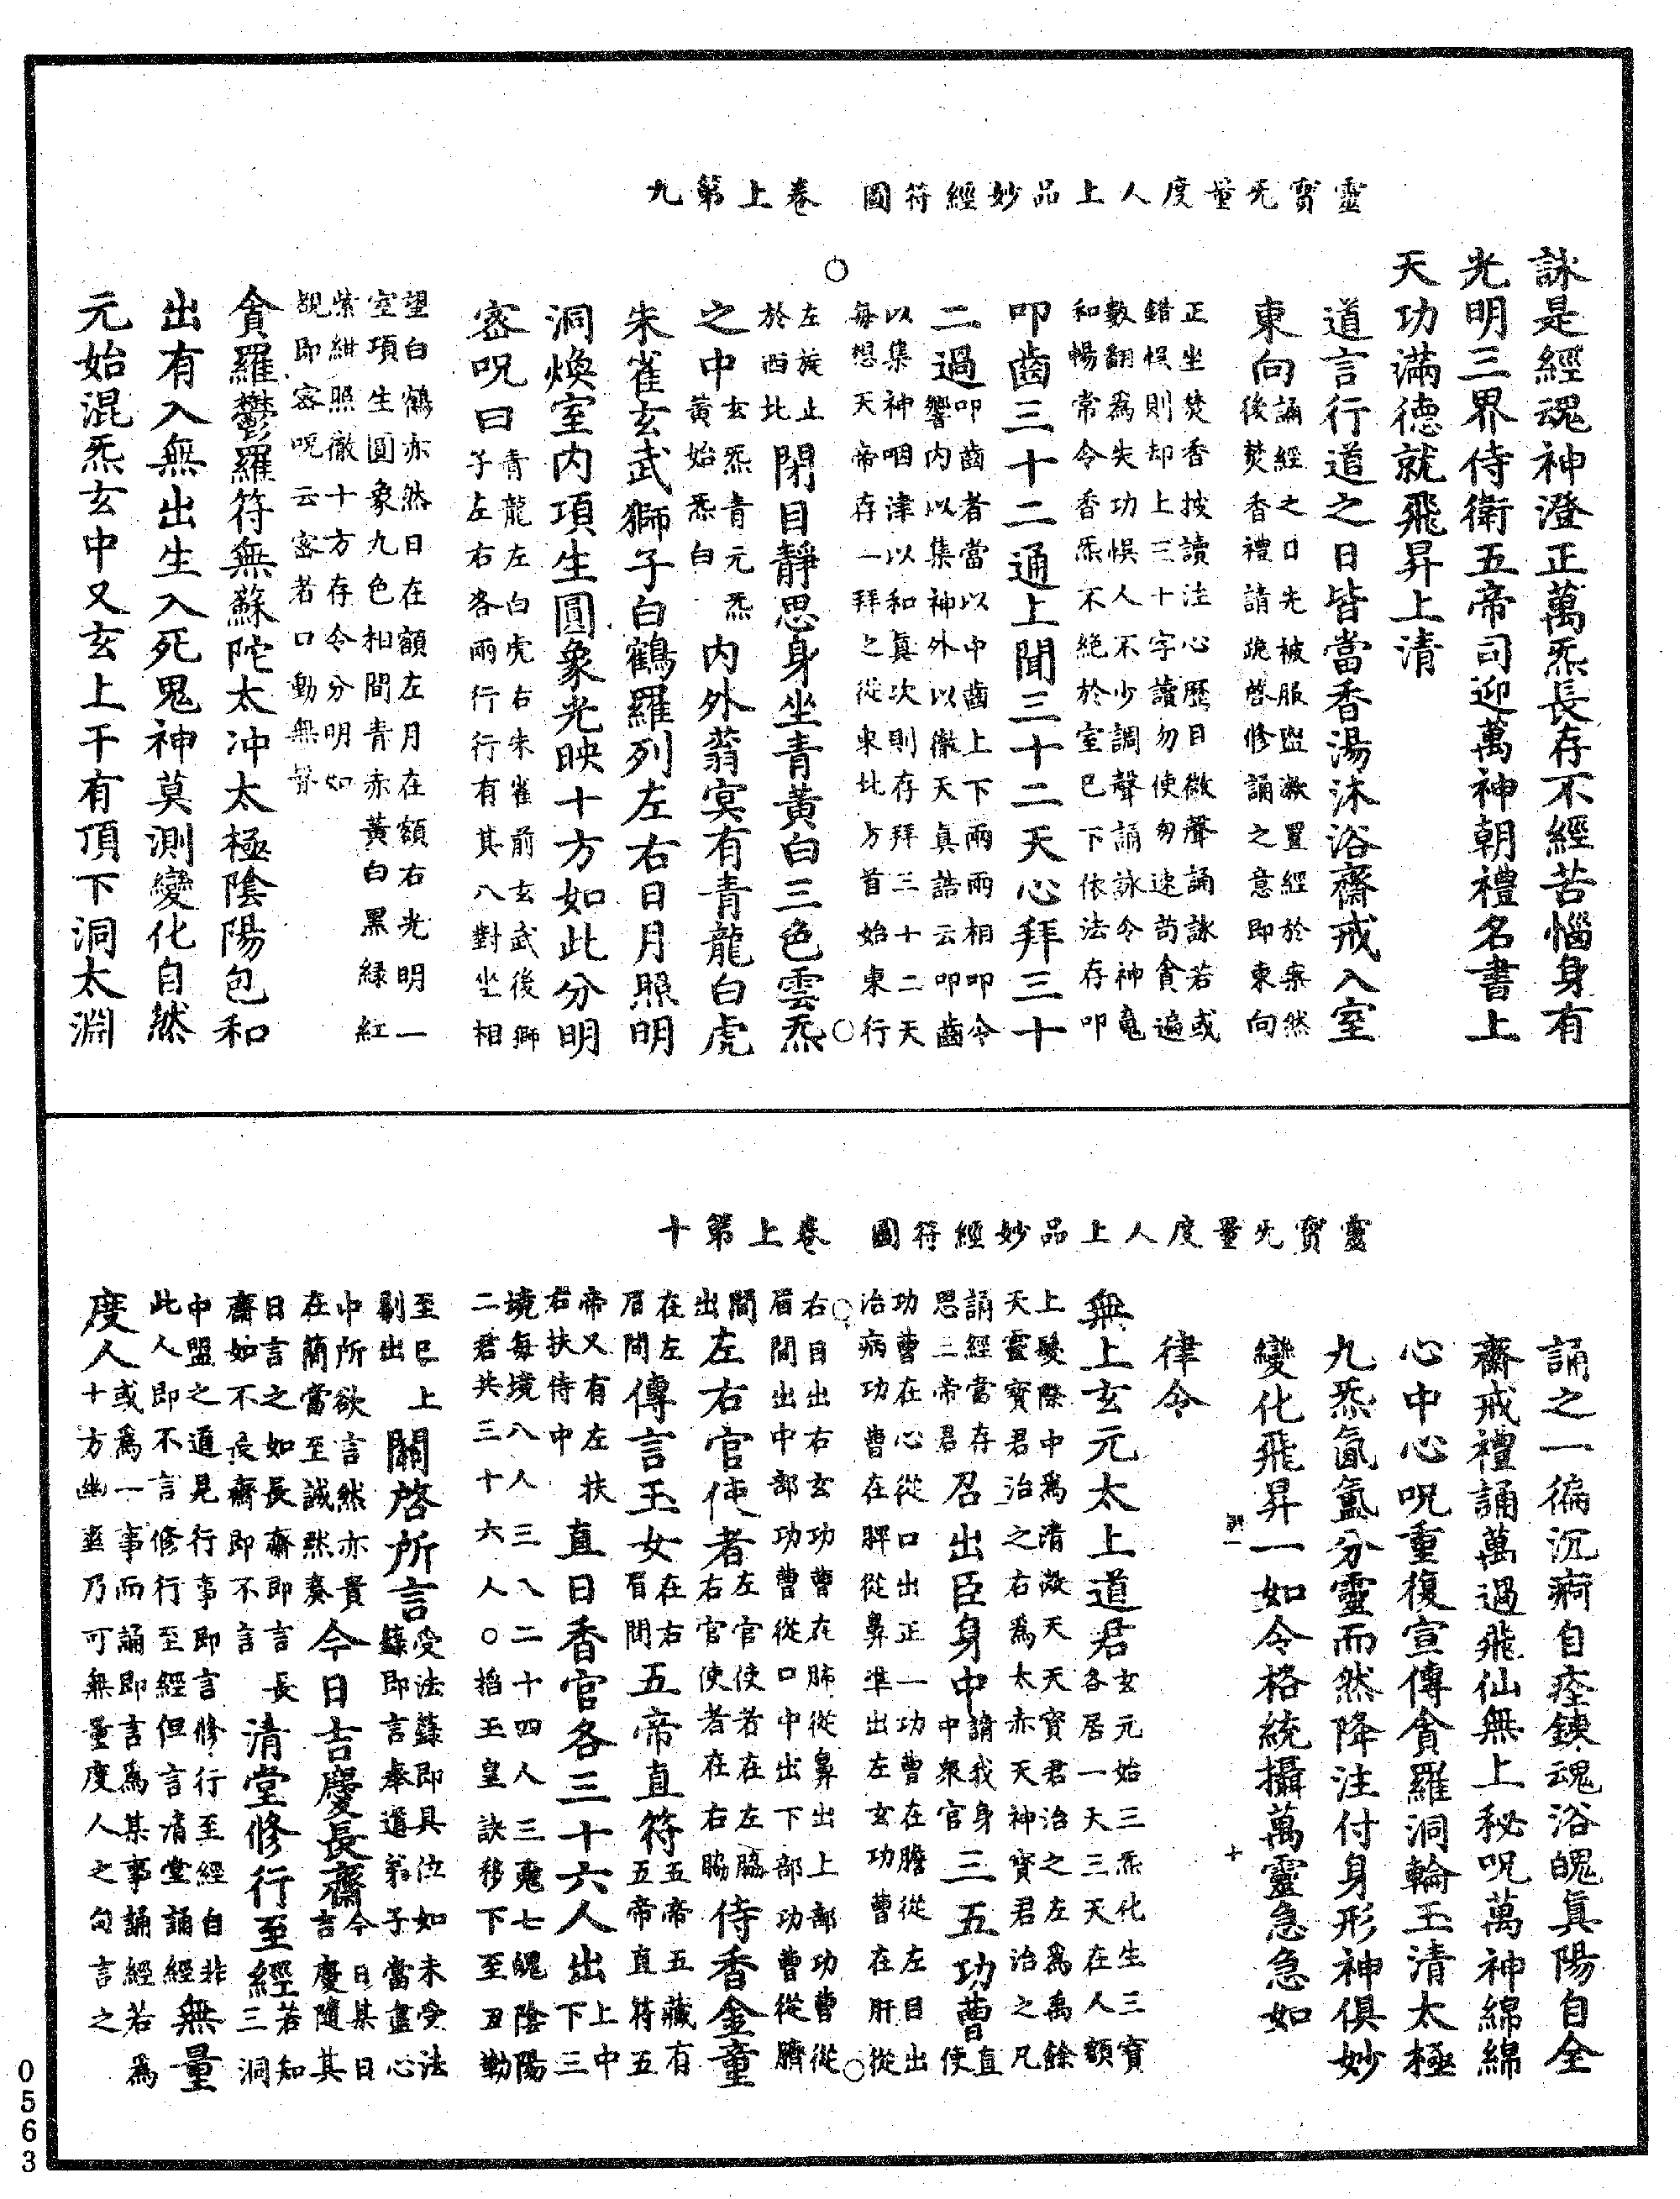 靈寶无量度人上品妙經符圖　卷上第九
詠是經魂神澄正萬炁長存不經苦惱身有
光明三界侍衛五帝司迎萬神朝禮名書上
天功滿德就飛昇上清
道言行道之日皆當香湯沐浴齋戒入室
東向誦經之日先被服盥漱置經於案然
後焚香禮請跪啓修誦之意即東向
正坐焚香披讀注心歷目微聲誦詠若或
錯悞則却上三十字讀勿使匆速苟貪遍
數翻為失功悞人不少調聲誦詠令神䰟
和暢常令香炁不絶於室已下依法存叩
叩齒三十二通上聞三十二天心拜三十
二過叩齒者當以中齒上下兩兩相叩令
響内以集神外以徹天真誥云叩齒
以集神咽津以和真次則存拜三十二天
每想天帝存一拜之從東北方首始東行
左旋止
於西北閉目靜思身坐青黃白三色雲炁
之中玄炁青元炁
黃始炁白内外蓊冥有青龍白虎
朱雀玄武獅子白鶴羅列左右日月照明
洞煥室内項生圓象光映十方如此分明
密呪曰青龍左白虎右朱雀前玄武後獅
子左右各兩行行有其八對坐相
望白鶴亦然日在額左月在額右光明一
室項生圓象九色相間青赤黃白黑緑紅
紫紺照徹十方存令分明如
覩即密呪云密者口動無聲
貪羅鬱羅符無蘇陀太冲太極陰陽包和
出有入無出生入死鬼神莫測變化自然
元始混炁玄中又玄上干有頂下洞太淵
靈寶无量度人上品妙經符圖　卷上第十
誦之一徧沉痾自痊鍊魂浴魄真陽自全
齋戒禮誦萬過飛仙無上秘呪萬神綿綿
心中心呪重復宣傳貪羅洞輪玉清太極
九炁氤氳分靈而然降注付身形神俱妙
變化飛昇一如令格統攝萬靈急急如
十
律令
無上玄元太上道君玄元始三炁化生三寶
各居一天三天在人額
上髮際中為清微天天寶君治之左為禹餘
天靈寶君治之右為太赤天神寶君治之凡
誦經當存
思三帝君召出臣身中請我身
中衆官三五功曹直
使
功曹在心從口出正一功曹在膽從左目出
治病功曹在脾從鼻凖出左玄功曹在肝從
右目出右玄功曹在肺從鼻出上部功曹從
眉間出中部功曹從口中出下部功曹從臍
間
出左右官使者左官使者在左脇
右官使者在右脇侍香金童
在左
眉間傳言玉女在右
眉間五帝直符五帝五藏有
五帝直符五
帝又有左扶
右扶侍中直日香官各三十六人出上中
下三
境每境八人三八二十四人三䰟七魄陰陽
二君共三十六人○掐玉皇訣移下至丑勒
至巳上
剔出關啓所言受法籙即具位如未受法
籙即言奉道弟子當盡心
中所欲言然亦貴
在簡當至誠然奏今日吉慶長齋今日某日
言慶隨其
日言之如長齋即言長
齋如不長齋即不言清堂修行至經若知
三洞
中盟之道見行事即言修行至經自非
此人即不言修行至經但言清堂誦經無量
度人或為一事而誦即言為某事誦經若為
十方幽乃可無量度人之句言之
0563